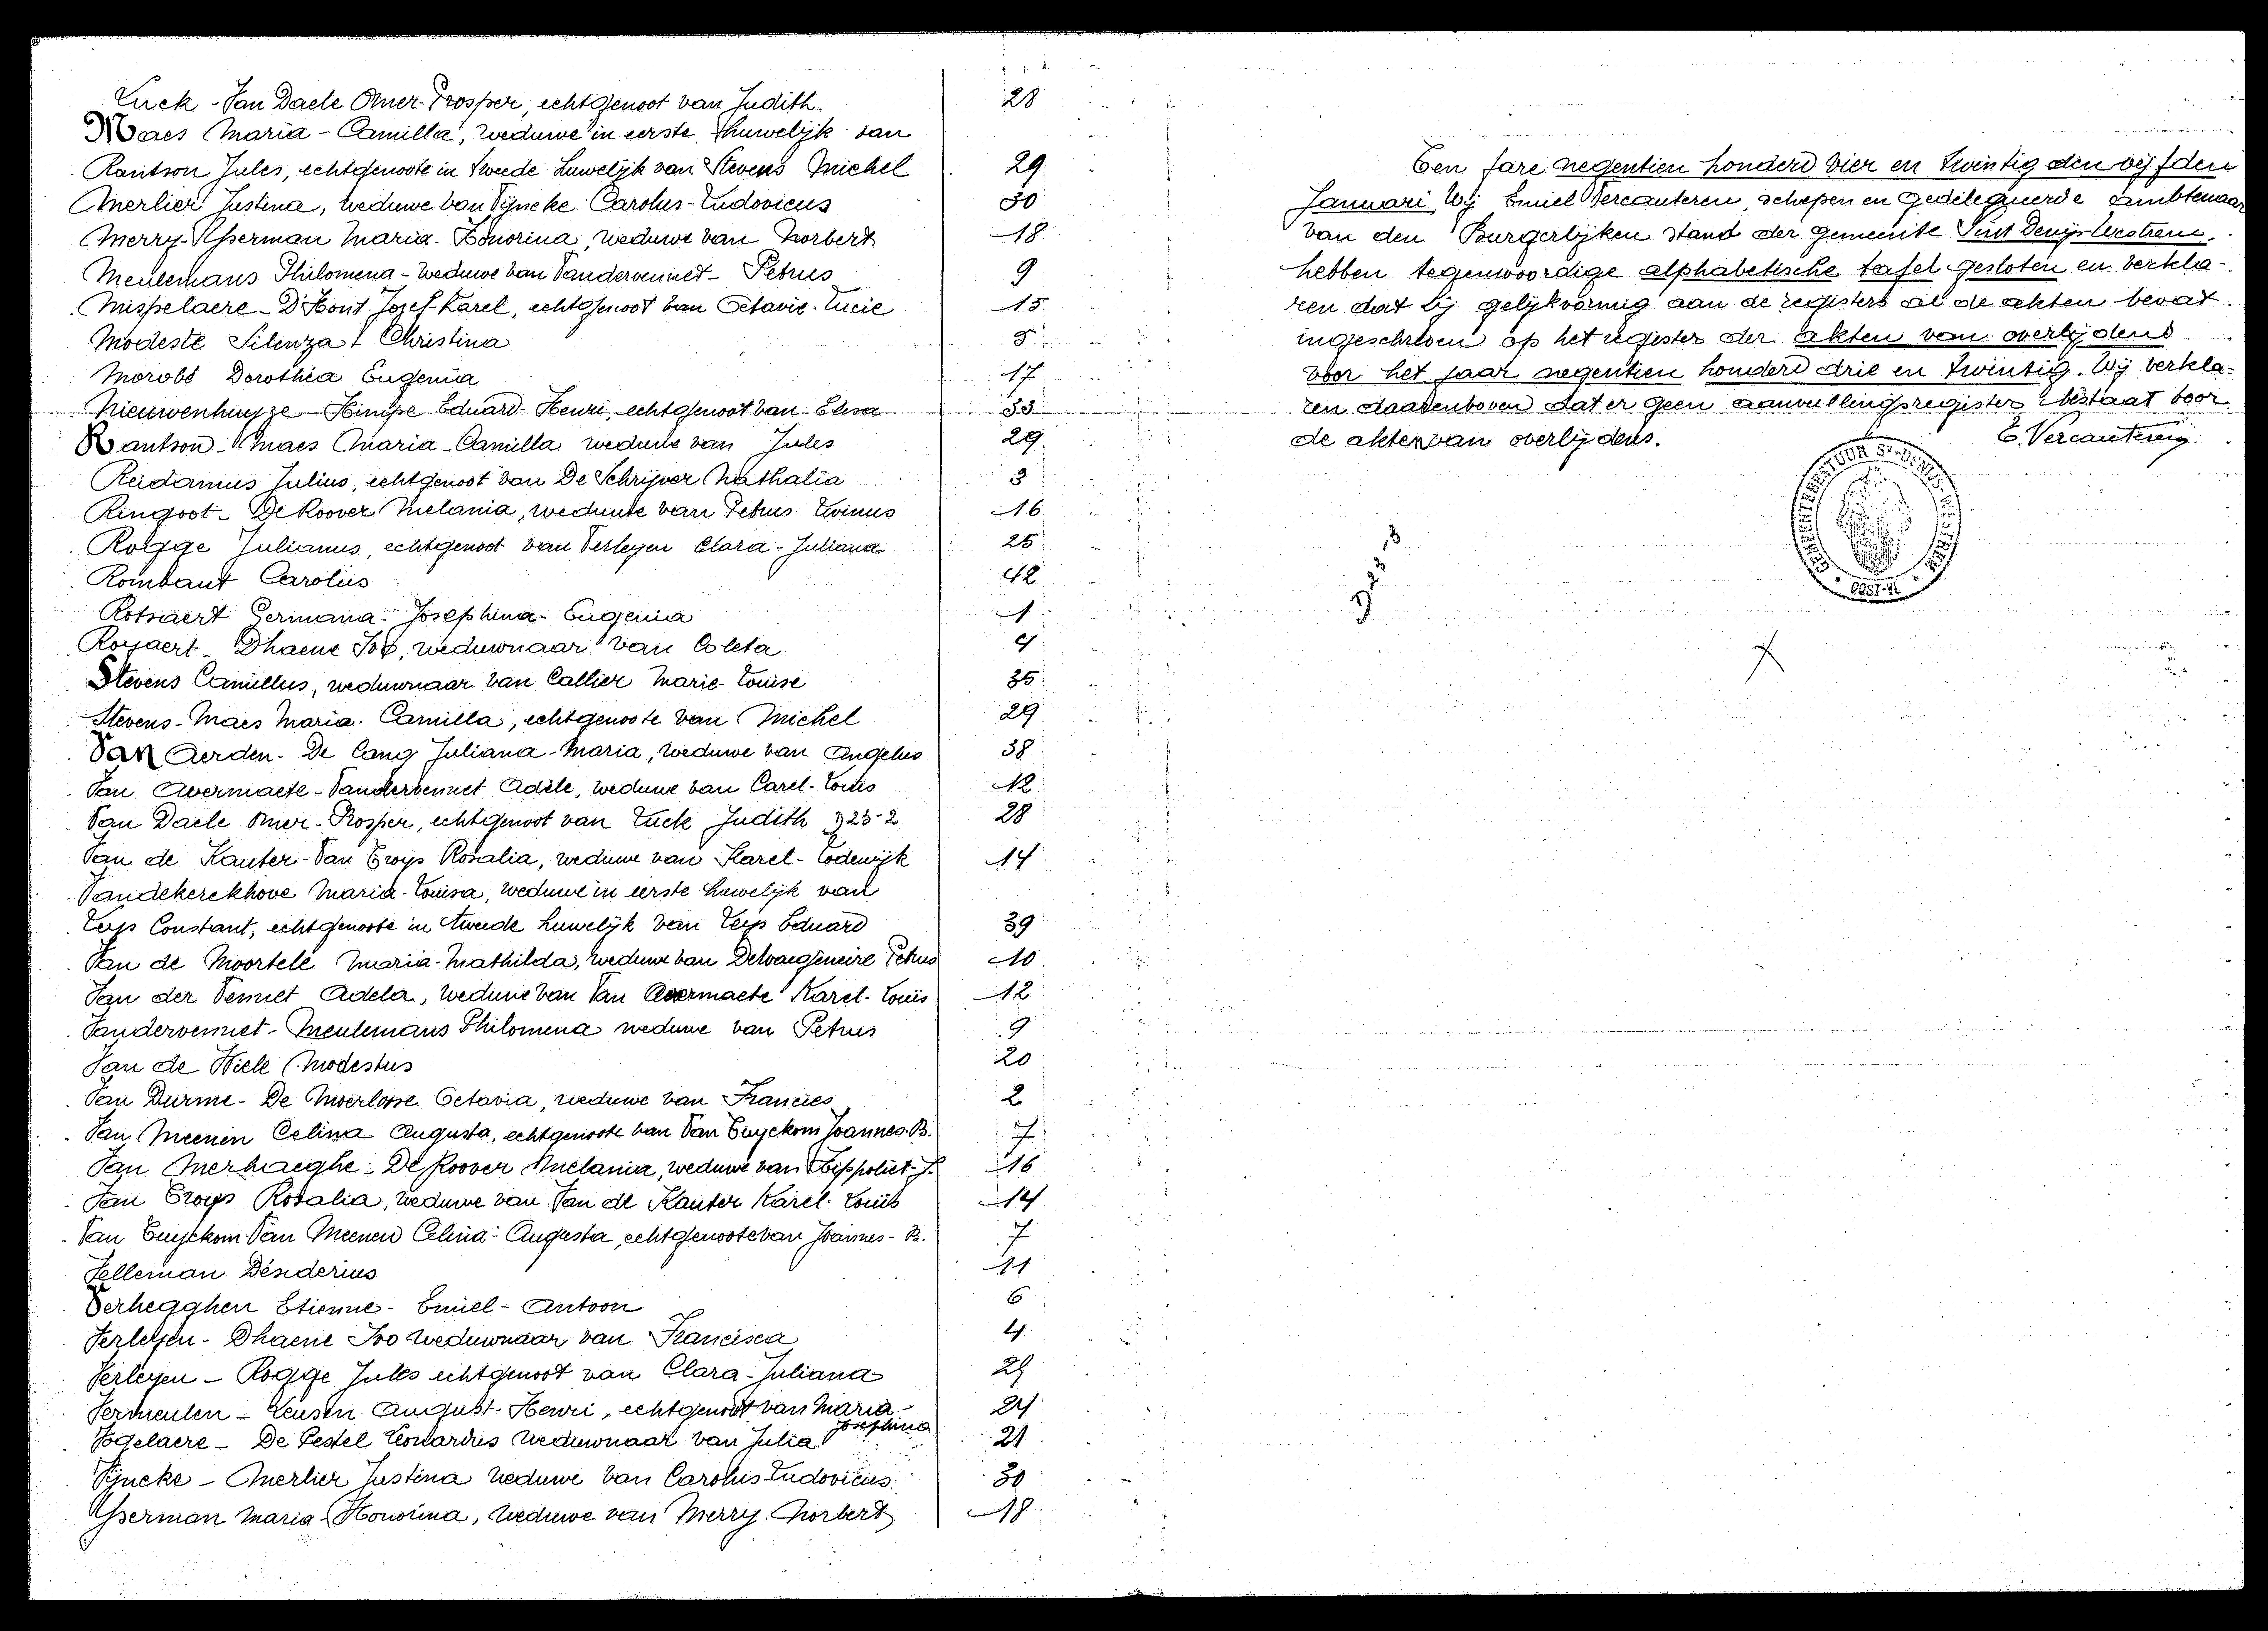 Luck - Van Daele Omer-Prosper, echtgenoot van Judith. 28
Maes Maria - Camilla, weduwe in eerste huwelijk van
Rantson Jules, echtgenoote in tweede huwelijk van Stevens Michel 29
Merlier Justina, weduwe van Vijncke Carolus-Ludovicus 30
Merry-Ysserman Maria-Honorina, weduwe van Norbert 18
Meulemans Philomena - weduwe van Vandervennet - Petrus 9
Mispelaere - D'Hont Jozef-Karel, echtgenoot van Octavie-Lucie 15
Modeste Silenza Christina 5
Morobé Dorothéa Eugenia 17
Nieuwenhuyze - Himpe Eduard-Henri, echtgenoot van Elisa 33
Rantson - Maes Maria-Camilla weduwe van Jules 29
Reidamus Julius, echtgenoot van De Schrijver Nathalia 3
Ringoot - De Roover Melania, weduwe van Petrus-Livinus 16
Rogge Julianus, echtgenoot van Verleyen Clara-Juliana 25
Rombaut Carolus 42
Rotsaert Germana-Josephina-Eugenia 1
Royaert - Dhaene Ivo, weduwnaar van Coleta 4
Stevens Camillus, weduwnaar van Callier Marie-Louise 35
Stevens-Maes Maria-Camilla, echtgenoote van Michel 29
Van Aerden - De Cang Juliana-Maria, weduwe van Angelus 38
Van Avermaete - Vandervennet Adèle, weduwe van Carel-Louis 12
Van Daele Omer-Prosper, echtgenoot van Luck Judith D23-2 28
Van de Kauter - Van Croijs Rosalia, weduwe van Karel-Lodewijk 14
Vandekerckhove Maria-Louisa, weduwe in eerste huwelijk van
Leys Constant, echtgenoote in tweede huwelijk van Leys Eduard 39
Van de Moortele Maria-Mathilda, weduwe van Delvaegeneire Petrus 10
Van der Vennet Adela, weduwe van Van Avermaete Karel-Louis 12
Vandervennet - Meulemans Philomena weduwe van Petrus 9
Van de Wiele Modestus 20
Van Durme - De Moerloose Octavia, weduwe van Francies 2
Van Meenen Celina Augusta, echtgenoote van Van Tuyckom Joannes-B. 7
Van Merhaeghe - De Roover Melania, weduwe van Hippoliet-J. 16
Van Croys Rosalia, weduwe van Van de Kauter Karel-Louis 14
Van Tuyckom Van Meenen Celina-Augusta, echtgenoote van Joannes-B. 7
Velleman Désiderius 11
Verhegghen Etienne - Emiel - Antoon 6
Verleyen - Dhaene Ivo weduwnaar van Francisca 4
Verleyen - Rogge Jules echtgenoot van Clara-Juliana 25
Vermeulen - Leusen August-Henri, echtgenoot van Maria- 24
Josephina
Vogelaere - De Pestel Leonardus weduwnaar van Julia 21
Vijncke - Merlier Justina weduwe van Carolus Ludovicus 30
Ysserman Maria-Honorina, weduwe van Merry Norbert 18
Een jare negentien honderd vier en twintig den vijfden
Januari, Wij Emiel Vercauteren, schepen en gedelegeerde ambtenaar
van den Burgerlijken Stand der gemeente Sint Denijs-Westrem,
hebben tegenwoordige alphabetische tafel gesloten en verkla-
ren dat zij gelijkvormig aan de registers al de akten bevat
ingeschreven op het register der akten van overlijdens
voor het jaar negentien honderd drie en twintig. Wij verkla-
ren daarenboven dat er geen aanvullingsregister bestaat voor
de akten van overlijdens. E. Vercauteren
GEMEENTEBESTUUR ST-DENIJS-WESTREM
OOST-VL
D23 3